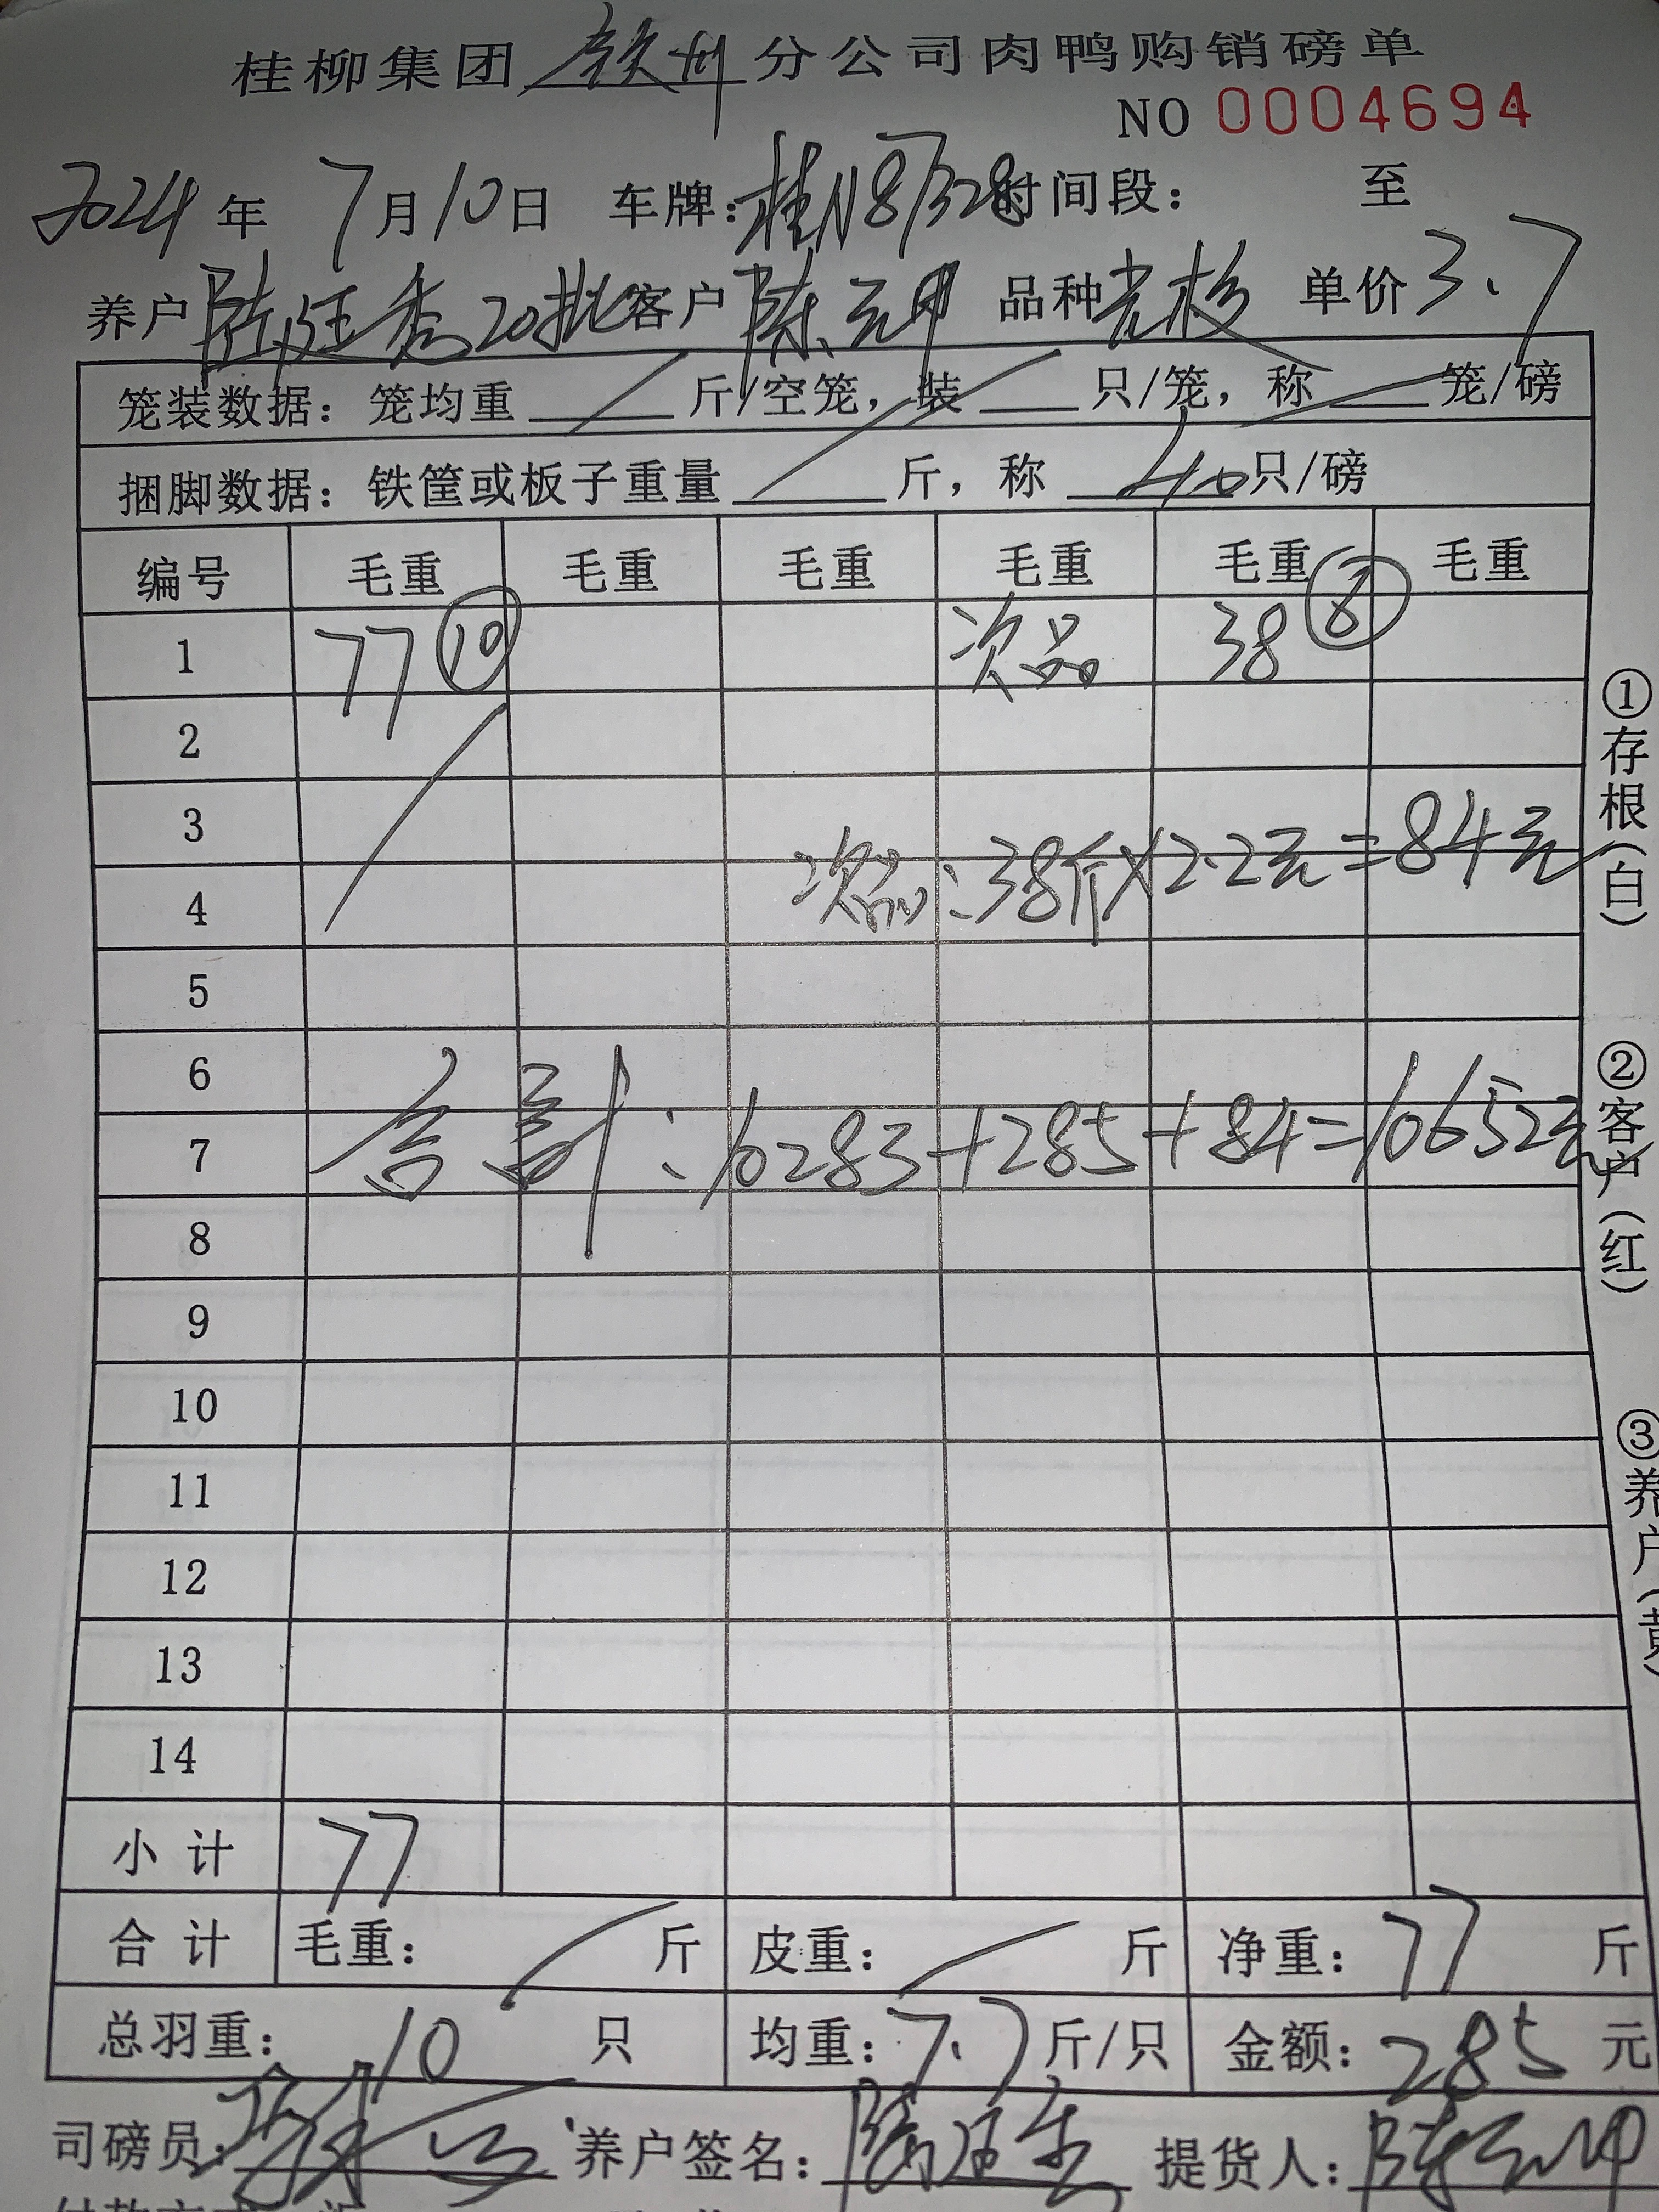 桂柳集团 钦州 分公司肉鸭购销磅单
NO 0004694
2024 年 7 月 10 日 车牌: 桂N87328 时间段: 至
养户 陆旺秀20批 客户 陈元坤 品种 老杉 单价 3.7
笼装数据: 笼均重 斤/空笼, 装 只/笼, 称 笼/磅
捆脚数据: 铁筐或板子重量 斤, 称 40 只/磅
编号 毛重 毛重 毛重 毛重 毛重 毛重
1 77 ⑩ 次品 38 ⑧
2
3
次品: 38斤×2.2元=84元
4
5
6
合计: 10283+285+84=10652元
7
8
9
10
11
12
13
14
小计 77
合计 毛重: 斤 皮重: 斤 净重: 77 斤
总羽重: 10 只 均重: 7.7 斤/只 金额: 285 元
司磅员: 养户签名: 陆旺秀 提货人: 陈元坤
①存根(白)
②客户(红)
③养户(黄)